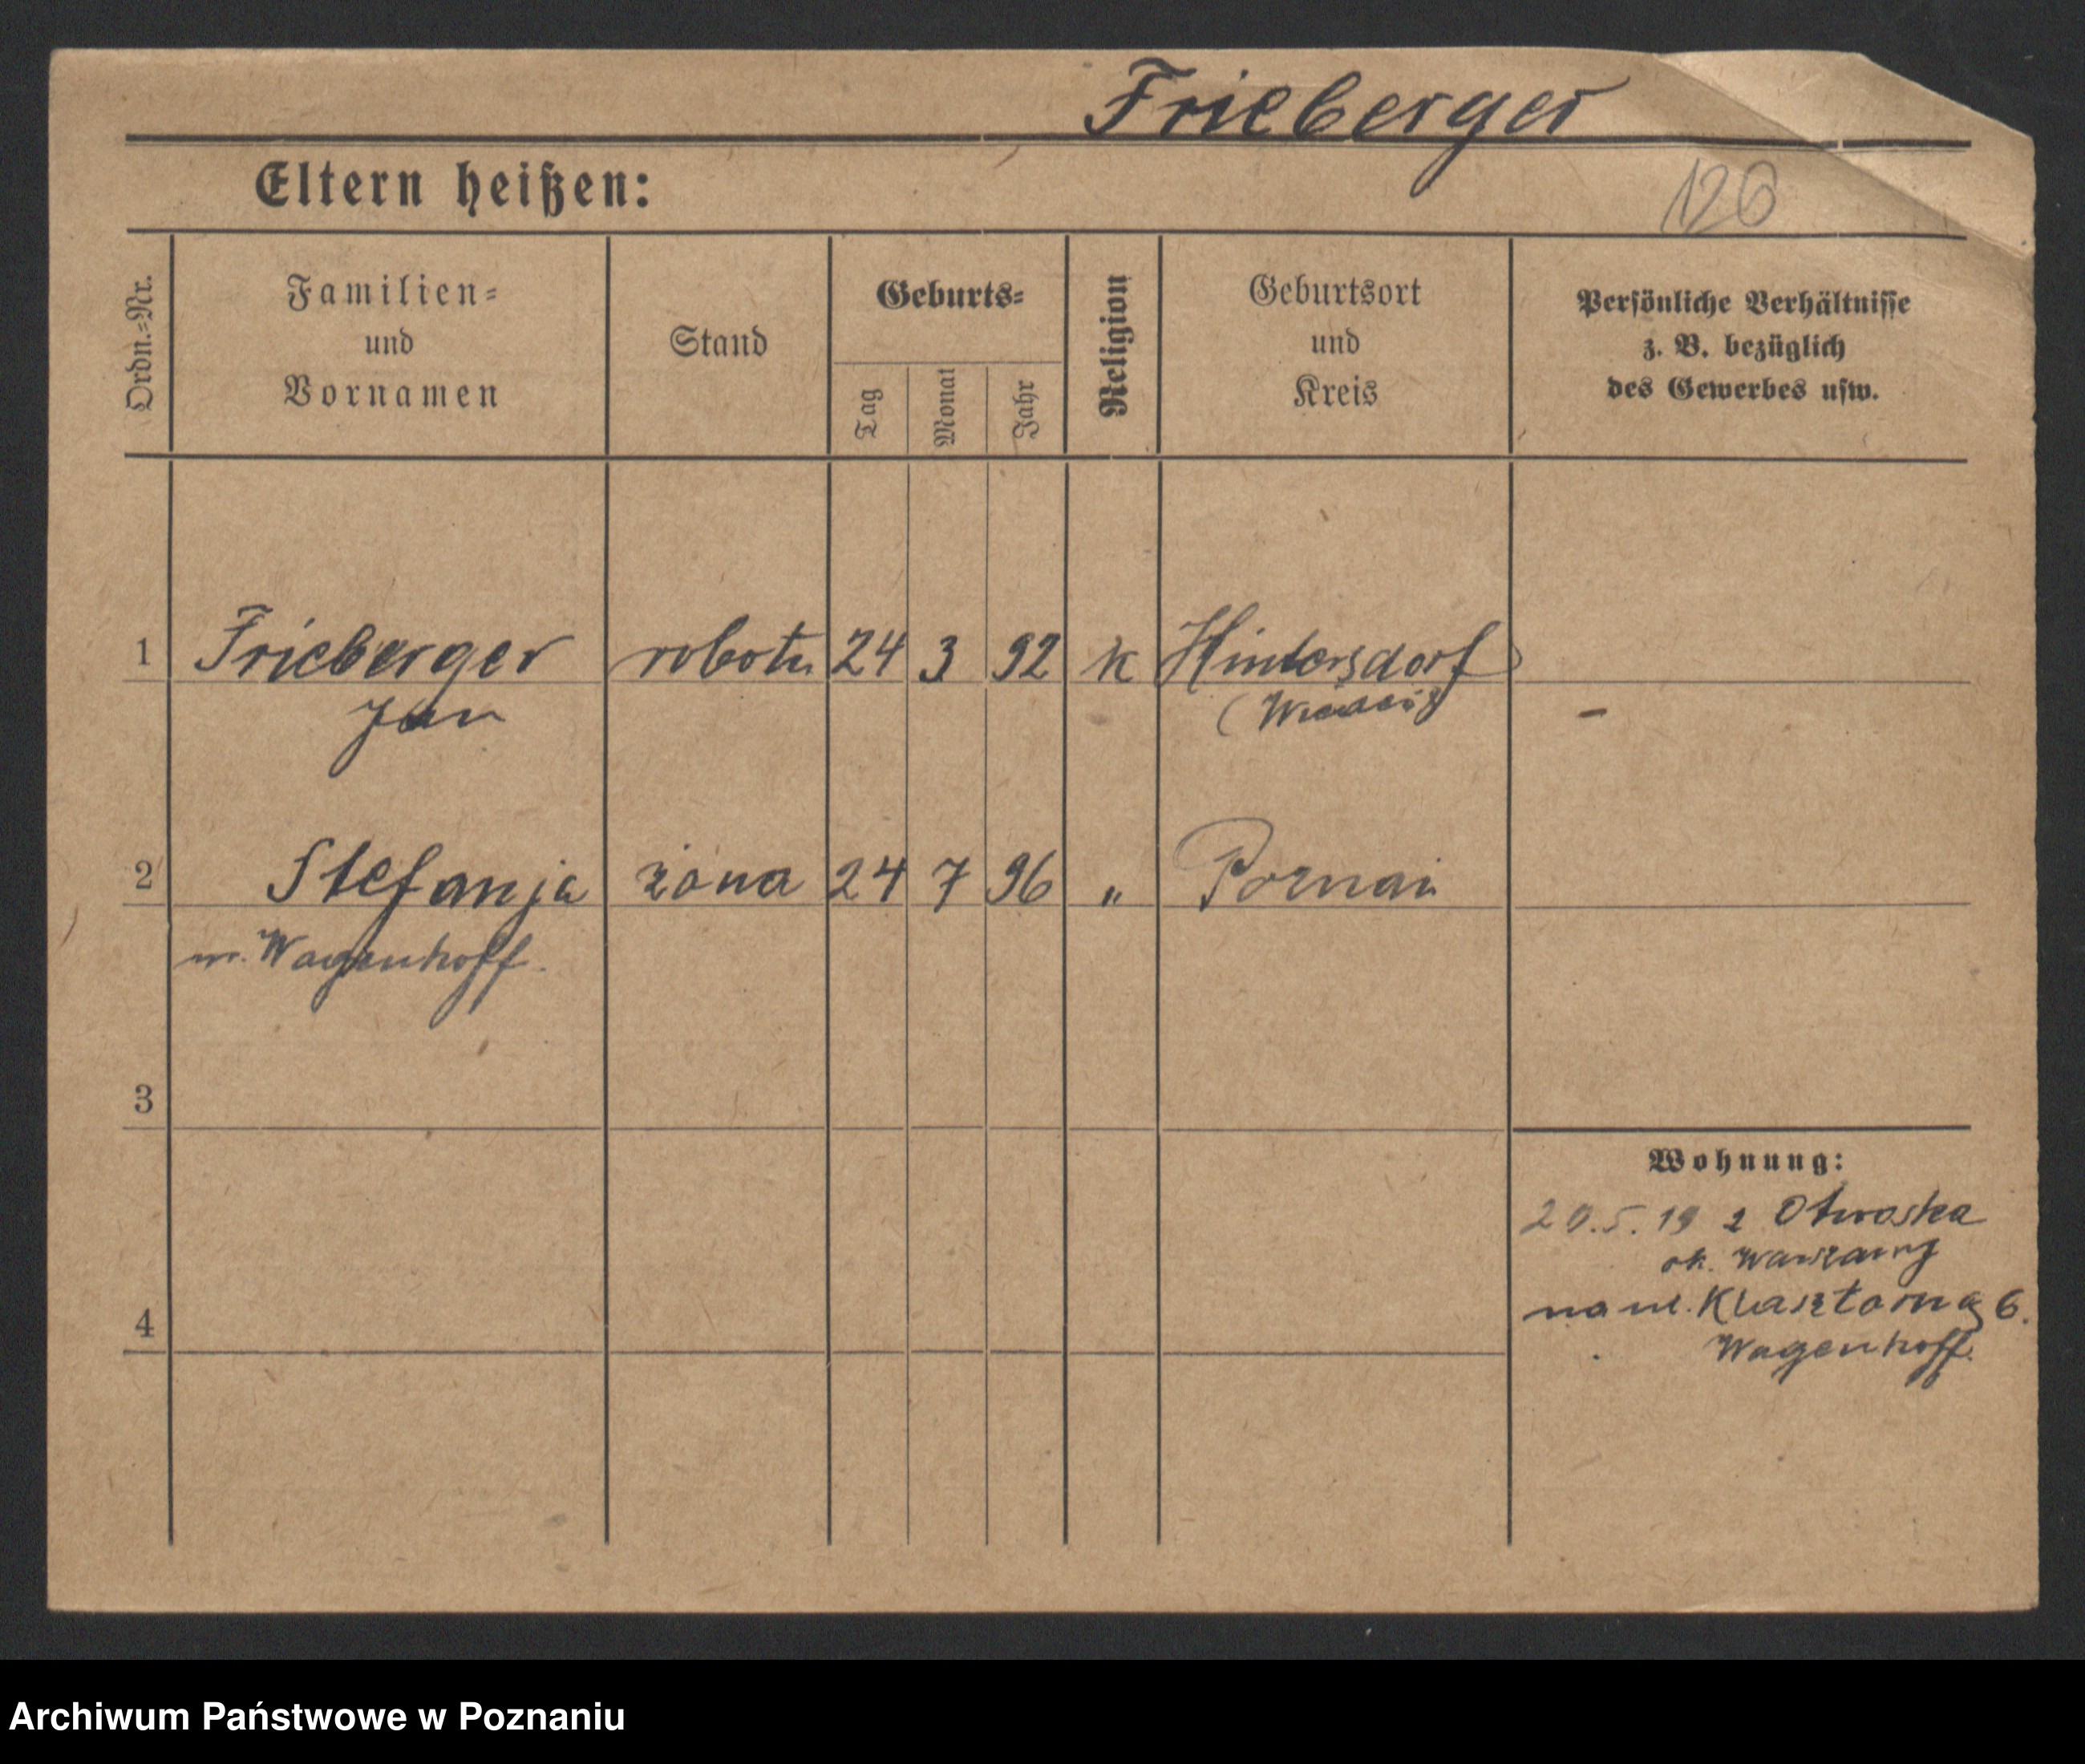 Frieberger
Eltern heißen:
126
Ordn.=Nr.
Familien=
und
Vornamen
Stand
Geburts=
Tag
Monat
Jahr
Religion
Geburtsort
und
Kreis
Persönliche Verhältnisse
z. B. bezüglich
des Gewerbes usw.
1 Frieberger robotn 24 3 92 k Hintersdorf
Jan (Wiedeń) -
2 Stefanja żona 24 7 96 " Poznań
Wagenhoff.
3
Wohnung:
20.5.19 z Otwoska
ok. Warszawy
4 na ul. Klasztorną 6.
Wagenhoff.
Archiwum Państwowe w Poznaniu